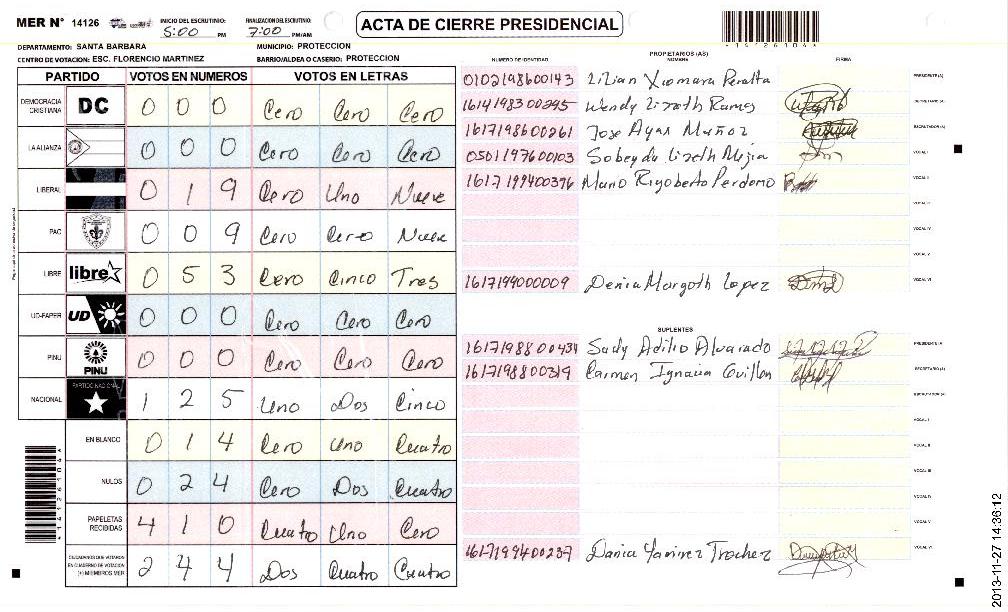 MER N° 14126
INICIO DEL ESCRUTINIO: 5:00 PM
FINALIZACION DEL ESCRUTINIO: 7:00 PM/AM
ACTA DE CIERRE PRESIDENCIAL
DEPARTAMENTO: SANTA BARBARA
MUNICIPIO: PROTECCION
CENTRO DE VOTACION: ESC. FLORENCIO MARTINEZ
BARRIO/ALDEA O CASERIO: PROTECCION
PARTIDO VOTOS EN NUMEROS VOTOS EN LETRAS
DEMOCRACIA CRISTIANA DC 0 0 0 Cero Cero Cero
LA ALIANZA 0 0 0 Cero Cero Cero
LIBERAL 0 1 9 Cero Uno Nueve
PAC 0 0 9 Cero Cero Nueve
LIBRE libre 0 5 3 Cero Cinco Tres
UD-FAPER UD 0 0 0 Cero Cero Cero
PINU PINU 0 0 0 Cero Cero Cero
NACIONAL PARTIDO NACIONAL 1 2 5 Uno Dos Cinco
EN BLANCO 0 1 4 Cero Uno Cuatro
NULOS 0 2 4 Cero Dos Cuatro
PAPELETAS RECIBIDAS 4 1 0 Cuatro Uno Cero
CIUDADANOS QUE VOTARON EN CUADERNO DE VOTACION (+) MIEMBROS MER 2 4 4 Dos Cuatro Cuatro
PROPIETARIOS (AS)
NUMERO DE IDENTIDAD NOMBRE FIRMA
0102198600143 Lilian Xiomara Peralta PRESIDENTE (A)
1614198300295 Wendy Lizeth Ramos SECRETARIO (A)
1617198600261 Jose Ayar Muñoz ESCRUTADOR (A)
0501197600103 Sobeyda Lizeth Mejia VOCAL I
1617199400376 Mario Rigoberto Perdomo VOCAL II
VOCAL III
VOCAL IV
VOCAL V
1617194000009 Denia Margoth Lopez VOCAL VI
SUPLENTES
1617198800434 Sudy Adilio Alvarado PRESIDENTE (A)
1617198800319 Carmen Ignacia Guillen SECRETARIO (A)
ESCRUTADOR (A)
VOCAL I
VOCAL II
VOCAL III
VOCAL IV
VOCAL V
1617199400237 Dania Yamirez Trochez VOCAL VI
2013-11-27 14:36:12